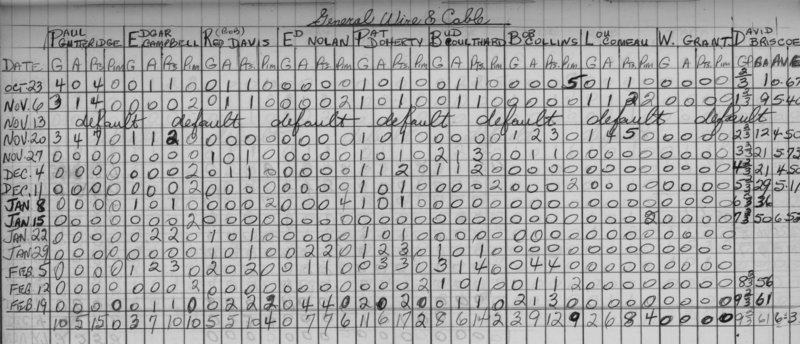 General Wire & Cable
PAUL EDGAR (Bob) ED PAT BUD BOB LOU W. GRANT DAVID
CAMPBELL RED DAVIS NOLAN DOHERTY COULTHARD COLLINS COMEAU BRISCOE
DATE G A Pts. P.m G A Pts. P.m G A Pts. P.m G A Pts. P.m G A Pts. P.m G A Pts. P.m G A Pts. P.m G A Pts. P.m G A Pts. P.m GP GA AVE
OCT-23 4 0 4 0 0 1 1 0 0 1 1 0 0 0 0 0 1 0 1 0 0 1 1 0 0 0 0 5 0 1 1 0 0 0 0 0
NOV. 6 3 1 4 0 0 0 0 2 0 1 1 0 0 0 0 2 1 0 1 0 0 1 1 0 0 0 0 0 1 1 2 2 0 0 0 0
NOV. 13 default default default default default default default default
NOV. 20 3 4 7 0 1 1 2 0 0 0 0 0 0 0 0 0 1 0 0 0 0 0 0 1 2 3 0 1 4 5 0 0 0 0 0
NOV. 27 0 0 0 0 0 0 0 0 1 0 1 0 0 0 0 0 1 0 1 0 2 1 3 0 0 1 1 0 0 0 0 0 0 0 0 0
DEC. 4 0 0 0 0 0 0 0 2 0 1 1 0 0 0 0 0 0 1 1 2 0 1 1 2 0 0 0 0 0 0 0 0 0 0 0 0
DEC. 11 0 0 0 0 0 0 0 2 0 0 0 0 0 0 0 1 0 1 0 0 0 0 2 0 0 0 2 0 0 0 0 0 0 0 0
JAN 8 0 0 0 0 1 0 1 0 0 0 0 2 0 0 0 4 1 0 1 0 0 0 0 0 0 0 0 0 0 0 0 0 0 0 0 0 36
JAN 15 0 0 0 0 0 0 0 2 0 0 0 0 0 0 0 0 0 0 0 0 0 0 0 0 0 0 0 0 0 0 0 2 0 0 0 0 50
JAN 22 0 0 0 0 0 2 2 0 1 0 1 0 0 0 0 0 1 0 1 0 0 0 0 0 0 0 0 0 0 0 0 0 0 0 0 0
JAN 29 0 0 0 0 0 0 0 0 1 0 1 0 0 2 2 0 1 2 3 0 1 0 1 0 0 0 0 0 0 0 0 0 0 0 0 0
FEB. 5 0 0 0 0 1 2 3 0 2 0 2 0 0 1 1 0 0 3 3 0 3 1 4 0 0 4 4 0 0 0 0 0 0 0 0 0
FEB. 12 0 0 0 0 0 0 0 2 0 1 0 1 0 0 0 0 0 0 0 2 1 0 1 0 0 1 1 2 0 0 0 0 0 0 0 0 56
FEB 19 0 0 0 0 0 1 1 0 0 2 2 2 0 4 4 0 2 0 2 0 0 1 1 0 2 1 3 0 0 0 0 0 0 0 0 0 61
10 5 15 0 3 7 10 10 5 5 10 4 0 7 7 6 11 6 17 2 8 6 14 2 3 9 12 9 2 6 8 4 0 0 0 0 61